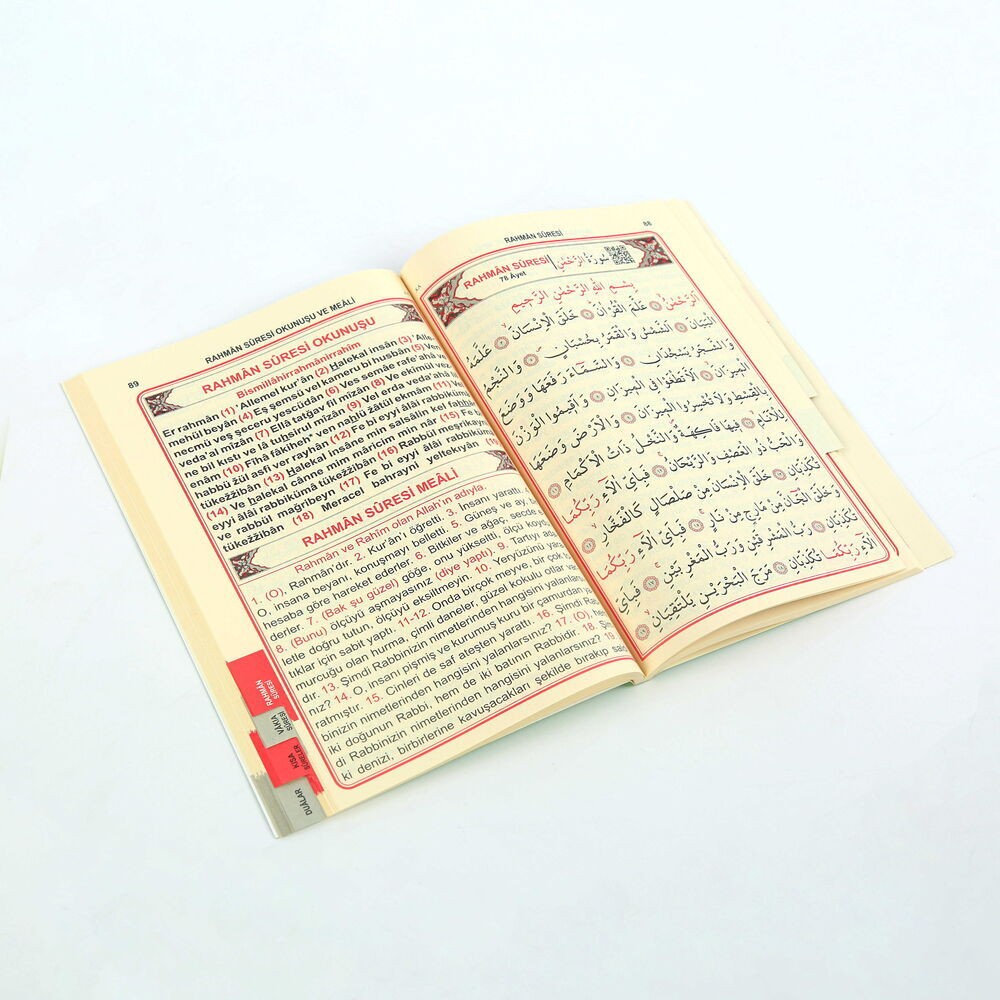 88
RAHMÂN SÛRESİ
RAHMÂN SÛRESİ سُورَةُ الرَّحْمٰنِ
78 Âyet
بِسْمِ اللّٰهِ الرَّحْمٰنِ الرَّحِيمِ
اَلرَّحْمٰنُ ﴿١﴾ عَلَّمَ الْقُرْاٰنَ ﴿٢﴾ خَلَقَ الْاِنْسَانَ ﴿٣﴾ عَلَّمَهُ
الْبَيَانَ ﴿٤﴾ اَلشَّمْسُ وَالْقَمَرُ بِحُسْبَانٍ ﴿٥﴾ وَالنَّجْمُ
وَالشَّجَرُ يَسْجُدَانِ ﴿٦﴾ وَالسَّمَٓاءَ رَفَعَهَا وَوَضَعَ
الْمِيزَانَ ﴿٧﴾ اَلَّا تَطْغَوْا فِي الْمِيزَانِ ﴿٨﴾ وَاَقِيمُوا الْوَزْنَ
بِالْقِسْطِ وَلَا تُخْسِرُوا الْمِيزَانَ ﴿٩﴾ وَالْاَرْضَ وَضَعَهَا
لِلْاَنَامِ ﴿١٠﴾ فِيهَا فَاكِهَةٌ وَالنَّخْلُ ذَاتُ الْاَكْمَامِ ﴿١١﴾
وَالْحَبُّ ذُو الْعَصْفِ وَالرَّيْحَانُ ﴿١٢﴾ فَبِاَيِّ اٰلَٓاءِ رَبِّكُمَا
تُكَذِّبَانِ ﴿١٣﴾ خَلَقَ الْاِنْسَانَ مِنْ صَلْصَالٍ كَالْفَخَّارِ ﴿١٤﴾
وَخَلَقَ الْجَٓانَّ مِنْ مَارِجٍ مِنْ نَارٍ ﴿١٥﴾ فَبِاَيِّ اٰلَٓاءِ رَبِّكُمَا
تُكَذِّبَانِ ﴿١٦﴾ رَبُّ الْمَشْرِقَيْنِ وَرَبُّ الْمَغْرِبَيْنِ ﴿١٧﴾ فَبِاَيِّ
اٰلَٓاءِ رَبِّكُمَا تُكَذِّبَانِ ﴿١٨﴾ مَرَجَ الْبَحْرَيْنِ يَلْتَقِيَانِ ﴿١٩﴾
89
RAHMÂN SÛRESİ OKUNUŞU VE MEÂLİ
RAHMÂN SÛRESİ OKUNUŞU
Bismillâhirrahmânirrahîm
Er rahmân (1) 'Allemel kur'ân (2) Ḣalekal insân (3) 'Alle-
mehül beyân (4) Eş şemsü vel kameru bi husbân (5) Ven
necmü veş şeceru yescüdân (6) Ves semâe rafe'ahâ
veda'al mîzân (7) Ellâ tatġav fil mîzân (8) Ve ekîmül vez-
ne bil kıstı ve lâ tuḣsirul mîzân (9) Vel erda veda'ahâ lil
enâm (10) Fîhâ fâkiheh* ven naḣlü žâtül ekmâm (11) Vel
habbü žül asfi ver rayhân (12) Fe bi eyyi âlâi rabbikümâ
tükežžibân (13) Ḣalekal insâne min salsâlin kel faḣḣâr
(14) Ve ḣalekal cânne mim mâricim min nâr (15) Fe bi
eyyi âlâi rabbikümâ tükežžibân (16) Rabbül meşrikayni
ve rabbül maġribeyn (17) Fe bi eyyi âlâi rabbikümâ
tükežžibân (18) Meracel bahrayni yeltekıyân
RAHMÂN SÛRESİ MEÂLİ
Rahmân ve Rahîm olan Allah'ın adıyla.
1. (O), Rahmân'dır. 2. Kur'ân'ı öğretti. 3. İnsanı yarattı. 4.
O, insana beyanı, konuşmayı belletti. 5. Güneş ve ay, bir
hesaba göre hareket ederler. 6. Bitkiler ve ağaç, secde e-
derler. 7. (Bak şu güzel) göğe, onu yükseltti, ölçü koydu.
8. (Bunu) ölçüyü aşmayasınız (diye yaptı). 9. Tartıyı ada-
letle doğru tutun, ölçüyü eksiltmeyin. 10. Yeryüzünü yara-
tıklar için sabit yaptı. 11-12. Onda birçok meyve, bir çok to-
murcuğu olan hurma, çimli daneler, güzel kokulu otlar var-
dır. 13. Şimdi Rabbinizin nimetlerinden hangisini yalanlarsı-
nız? 14. O, insanı pişmiş ve kurumuş kuru bir çamurdan ya-
ratmıştır. 15. Cinleri de saf ateşten yarattı. 16. Şimdi Rab-
binizin nimetlerinden hangisini yalanlarsınız? 17. (O), hem
iki doğunun Rabbi, hem de iki batının Rabbidir. 18. Şim-
di Rabbinizin nimetlerinden hangisini yalanlarsınız? 19. İ-
ki denizi, birbirlerine kavuşacakları şekilde bırakıp sal
RAHMÂN SÛRESİ
VÂKIA SÛRESİ
KISA SÛRELER
DUÂLAR